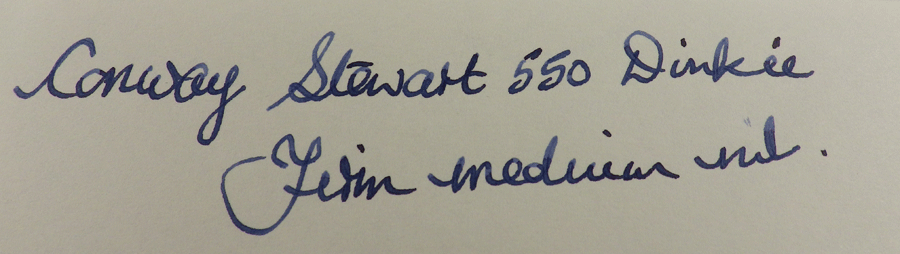 Conway Stewart 550 Dinkie
Firm medium nib.